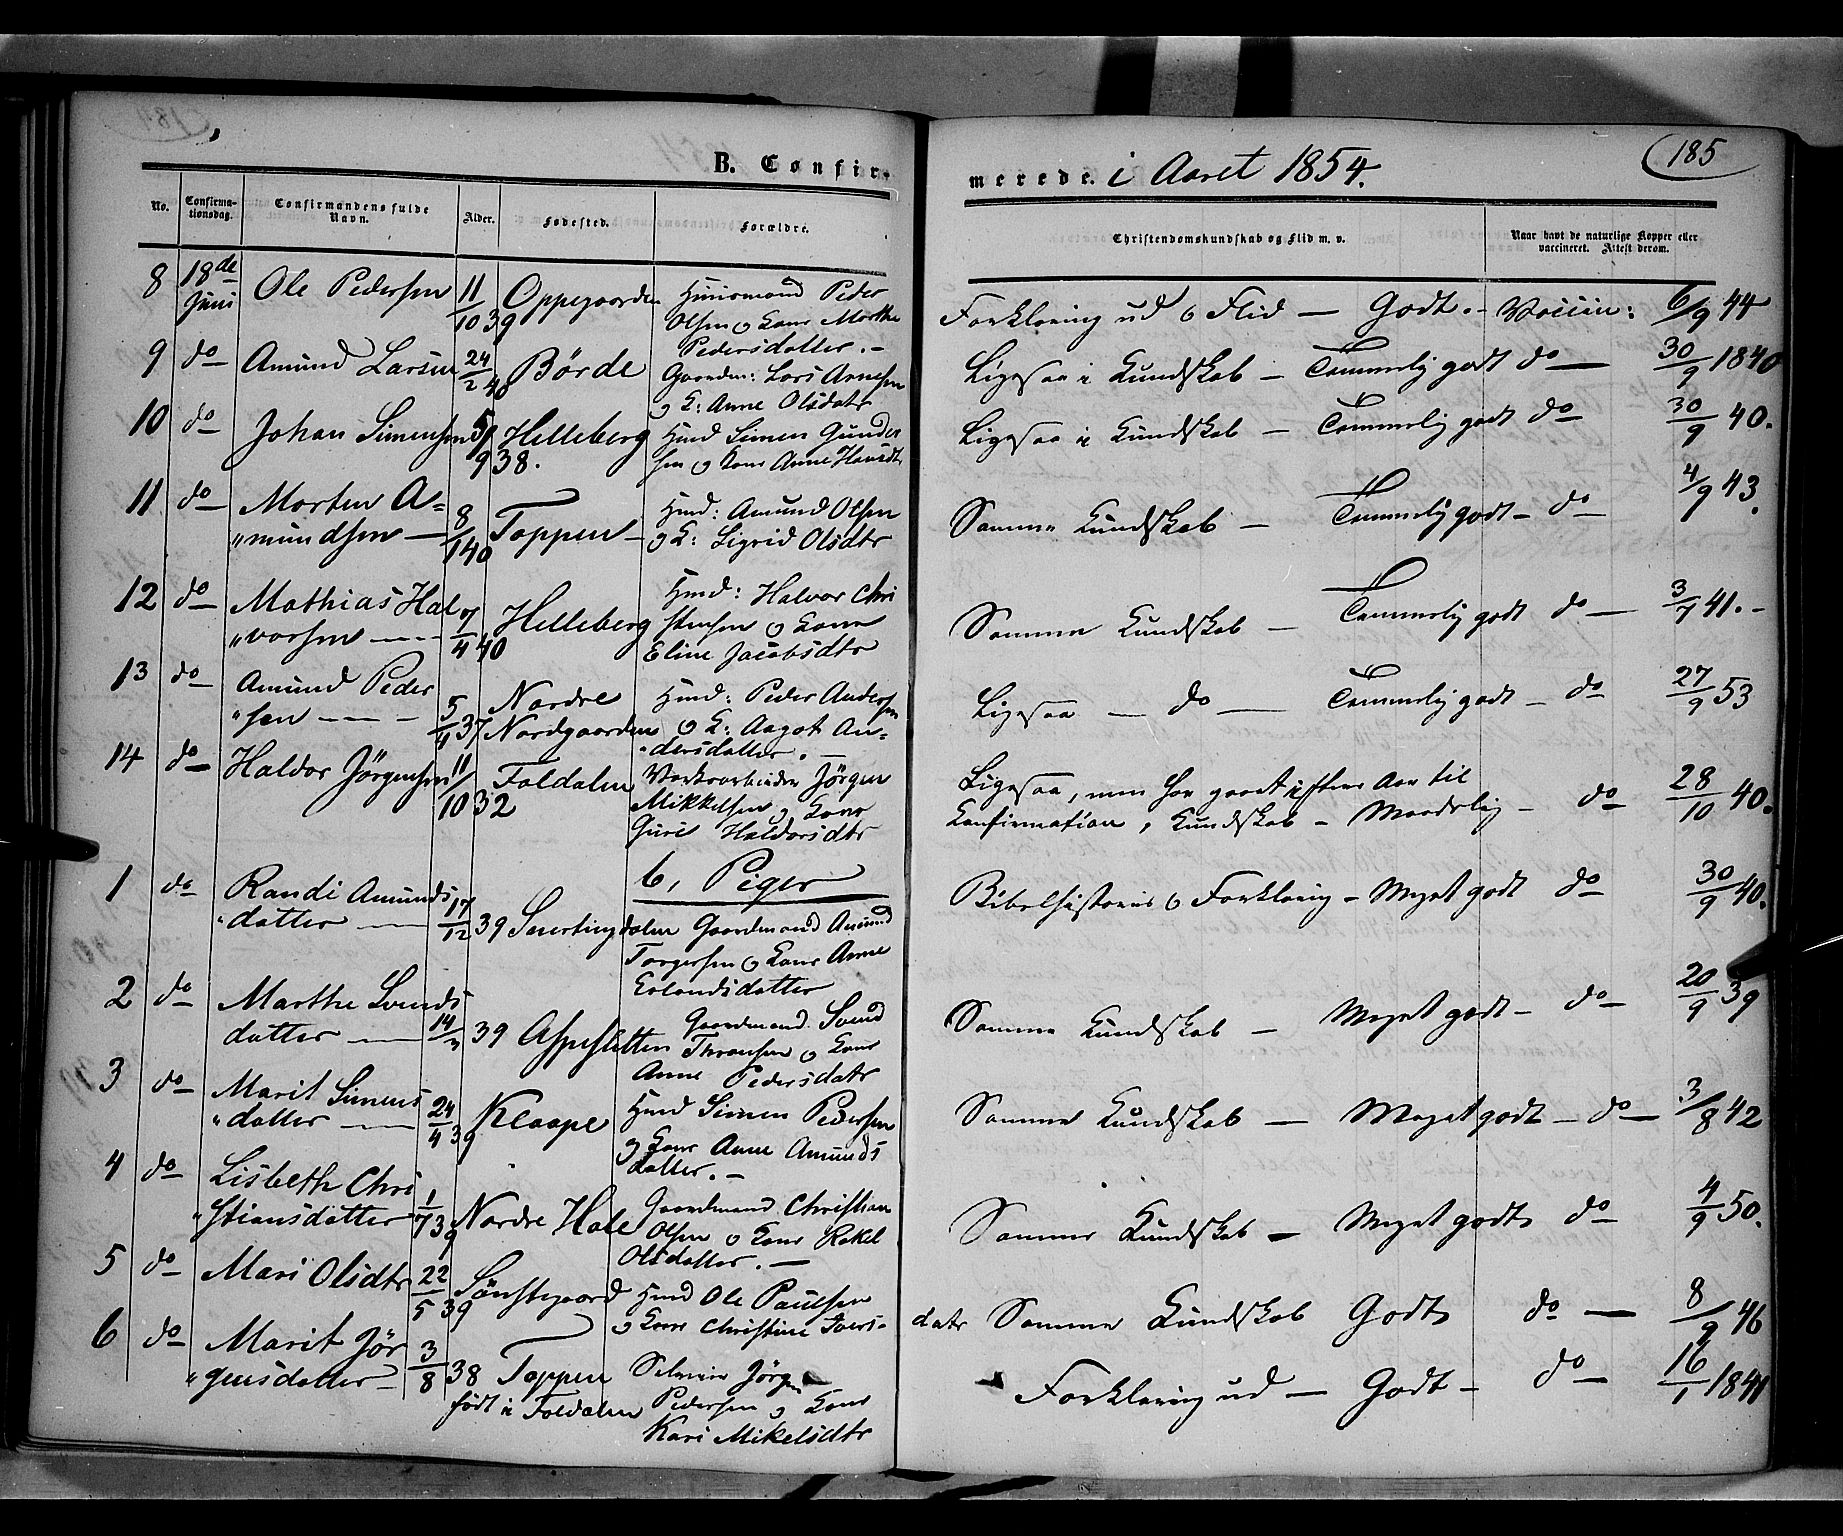 185
B. Confir-
merede. i Aaret 1854.
No.
Confirma-
tionsdag.
Confirmandens fulde
Navn.
Alder.
Fødested.
Forældre.
Christendomskundskab og Flid m. v.
Naar havt de naturlige Kopper eller
vaccineret. Attest derom.
8 18de Juni Ole Pedersen 11/10 39 Oppegaarden Huusmand Peder
Olsen og Kone Marthe
Pedersdatter. –
Forklaring ud og Flid – Godt. – Vaccin: 6/9 44
9 do Amund Larsen 24/2 40 Börde Gaardm: Lars Arnesen
og K: Anne Olsdatr
Ligesaa i Kundskab – Temmelig godt do – 30/9 1840
10 do Johan Simensen 5/9 38. Helleberg Hmd Simen Gunder
sen og Kone Anne Hansdtr
Ligesaa i Kundskab – Temmelig godt do 30/9 40.
11 do Morten A=
"mundsen – 8/1 40 Toppen – Hmd: Amund Olsen
og K: Sigrid Olsdtr
Samme Kundskab – Temmelig godt – do 4/9 43.
12 do Mathias Hal
"vorsen – 7/4 40 Helleberg Hmd: Halvor Chri
stensen og Kone
Eline Jacobsdtr
Samme Kundskab – Temmelig godt do – 3/7 41. –
13 do Amund Peder
"sen – – – 5/4 37 Nordre
Nordgaarden Hmd: Peder Andersen
og K: Aagot An=
"dersdatter. –
Ligesaa – do – Temmelig godt – do 27/9 53
14 do Haldor Jörgensen 11/10 32 Foldalen Værksarbeider Jörgen
Mikkelsen og Kone
Guri Haldorsdtr
Ligesaa, men har gaaet iffere Aar til
Confirmation, Kundskab – Maadelig – do 28/10 40.
b, Piger
1 do Randi Amunds
"datter – 17/12 39 Snertingdalen Gaardmand Amund
Torgersen og Kone Anne
Erlandsdatter
Bibelhistorie og Forklaring – Meget godt do 30/9 40.
2 do Marthe Svends
datter – 14/3 39 Aspesletten Gaardmand Svend
Thronsen og Kone
Anne Pedersdatr
Samme Kundskab – Meget godt – do 20/9 39
3 do Marit Simens
"datter – 24/4 39 Klaape Hmd Simen Pedersen
og Kone Anne Amunds
datter. –
Samme Kundskab – Meget godt – do – 3/8 42
4 do Lisbeth Chri
"stiansdatter 1/7 39 Nordre Hole Gaardmand Christian
Olsen og Kone Rakel
Olsdatter. –
Samme Kundskab – Meget godt do 4/9 50.
5 do Mari Olsdtr 22/5 39 Sönstegaard Hmd Ole Paulsen
og Kone Christine Ivers-
datr Samme Kundskab Godt do – 8/9 46
6 do Marit Jör
"gensdatter – 3/8 38 Toppen
født i Foldalen Selveier Jörgen
Pedersen og Kone
Kari Mikelsdtr
Forklaring ud – Godt – do – 16/1 1841